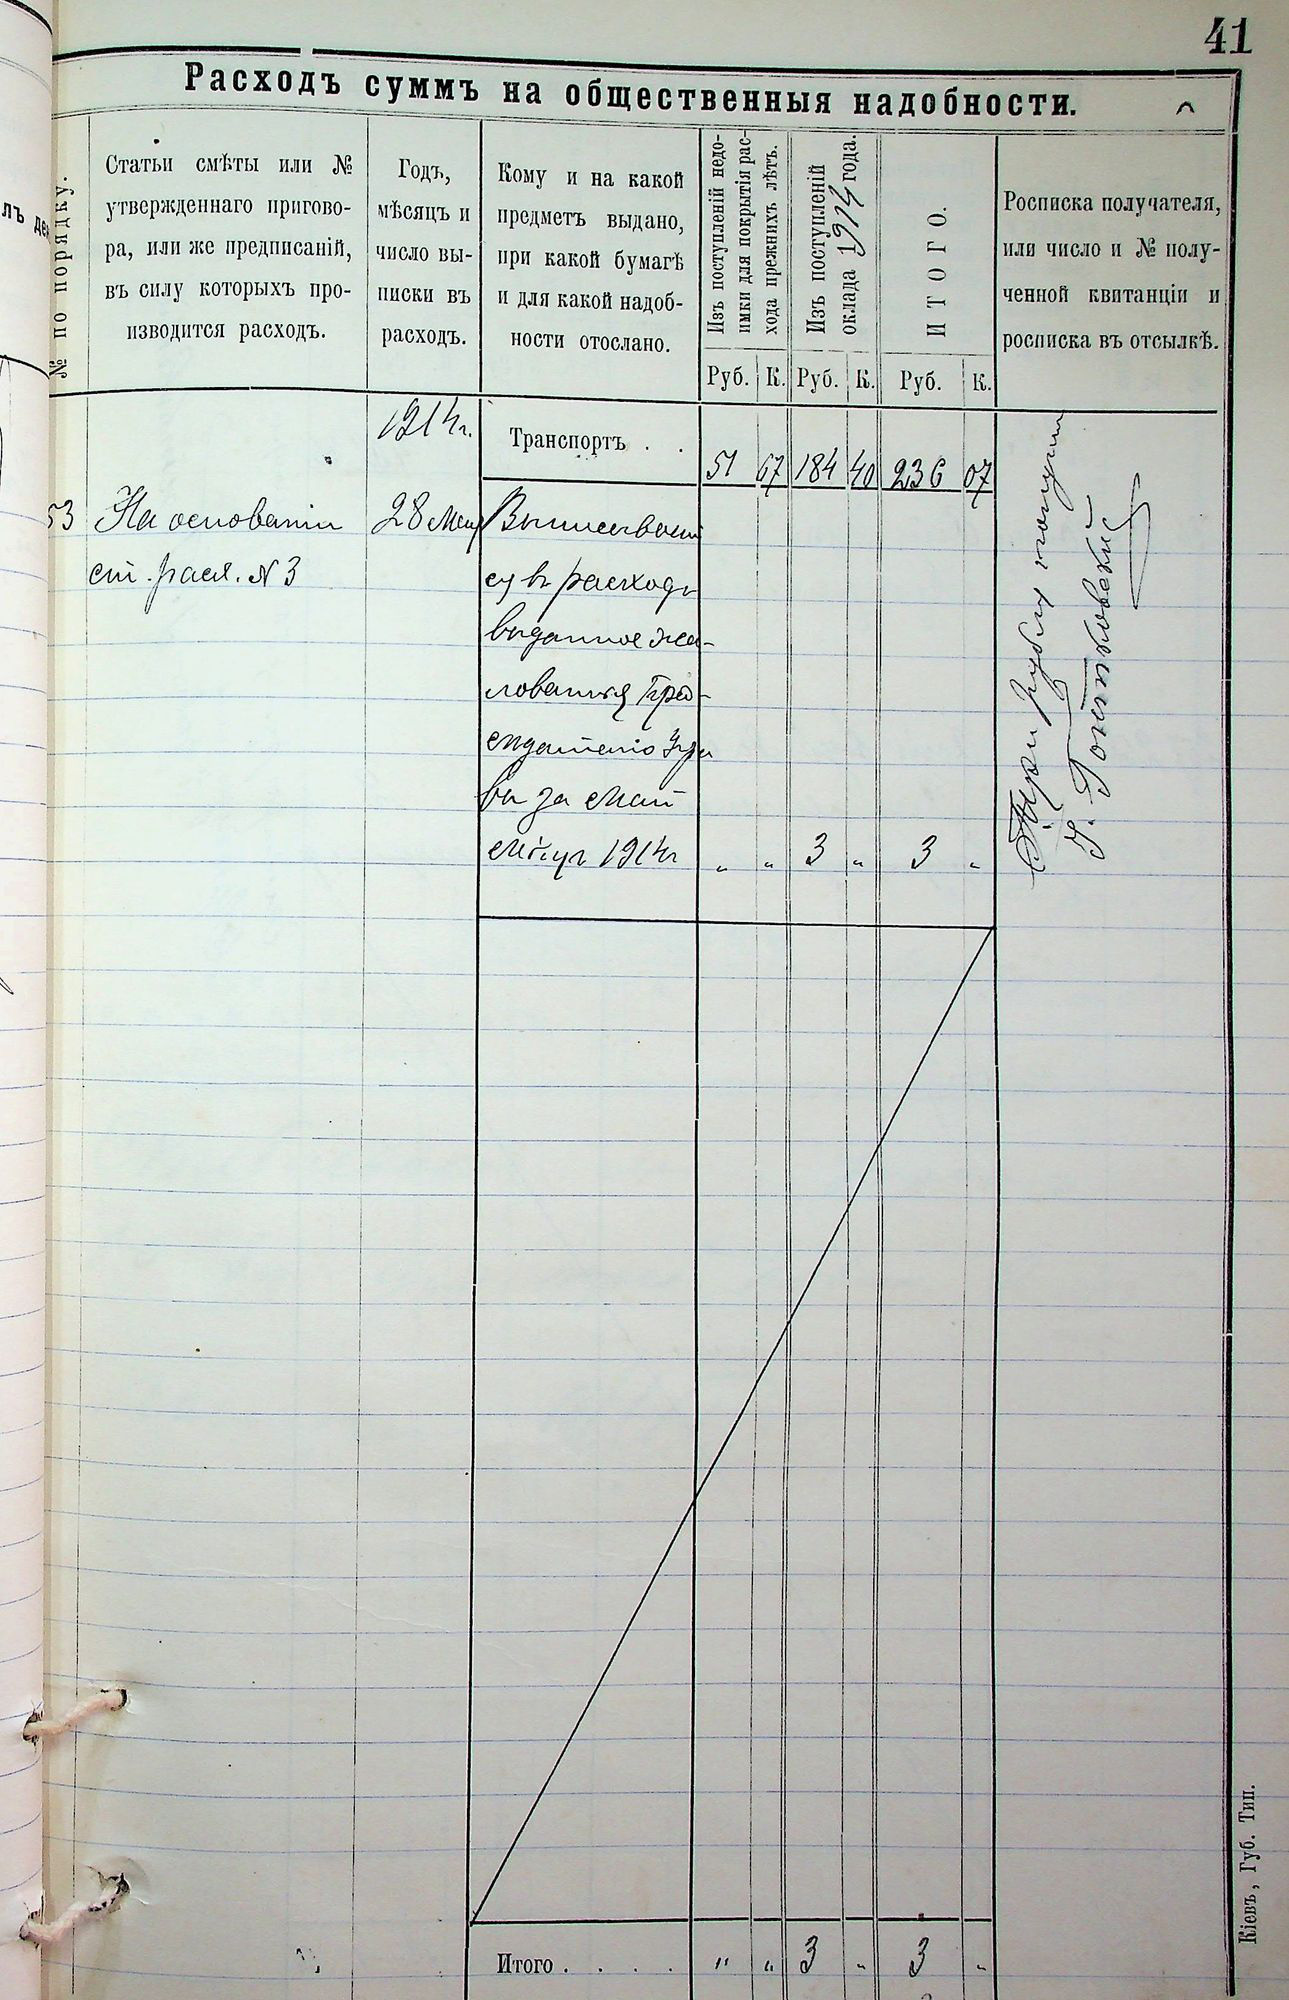 41
Расходъ суммъ на общественныя надобности.
№ по порядку.
Статьи смѣты или №
утвержденнаго пригово-
ра, или же предписаній,
въ силу которыхъ про-
изводится расходъ.
Годъ,
мѣсяцъ и
число вы-
писки въ
расходъ.
Кому и на какой
предметъ выдано,
при какой бумагѣ
и для какой надоб-
ности отослано.
Изъ поступленій недо-
имки для покрытія рас-
хода прежнихъ лѣтъ.
Изъ поступленій
оклада 1914 года.
ИТОГО.
Росписка получателя,
или число и № полу-
ченной квитанціи и
росписка въ отсылкѣ.
Руб. К. Руб. К. Руб. К.
1914 г.
Транспортъ . . 51 67 184 40 236 07
53 На основаніи 28 Мая
ст. расх. № 3
въ расходъ
выданное жа-
лованья
за Май
1914 г „ „ 3 „ 3 „
Три рубля получилъ
Итого . . . . „ „ 3 „ 3 „
Кіевъ, Губ. Тип.